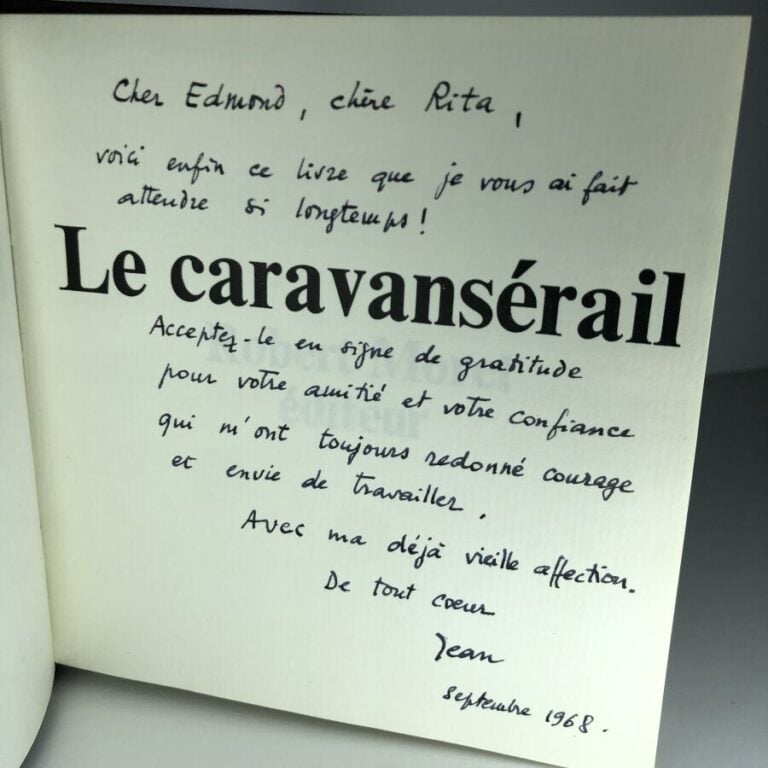 Cher Edmond, chère Rita,
voici enfin ce livre que je vous ai fait
attendre si longtemps !
Le caravansérail
Acceptez-le en signe de gratitude
Robert Morel
éditeur
pour votre amitié et votre confiance
qui m'ont toujours redonné courage
et envie de travailler.
Avec ma déjà vieille affection.
De tout coeur
Jean
septembre 1968.